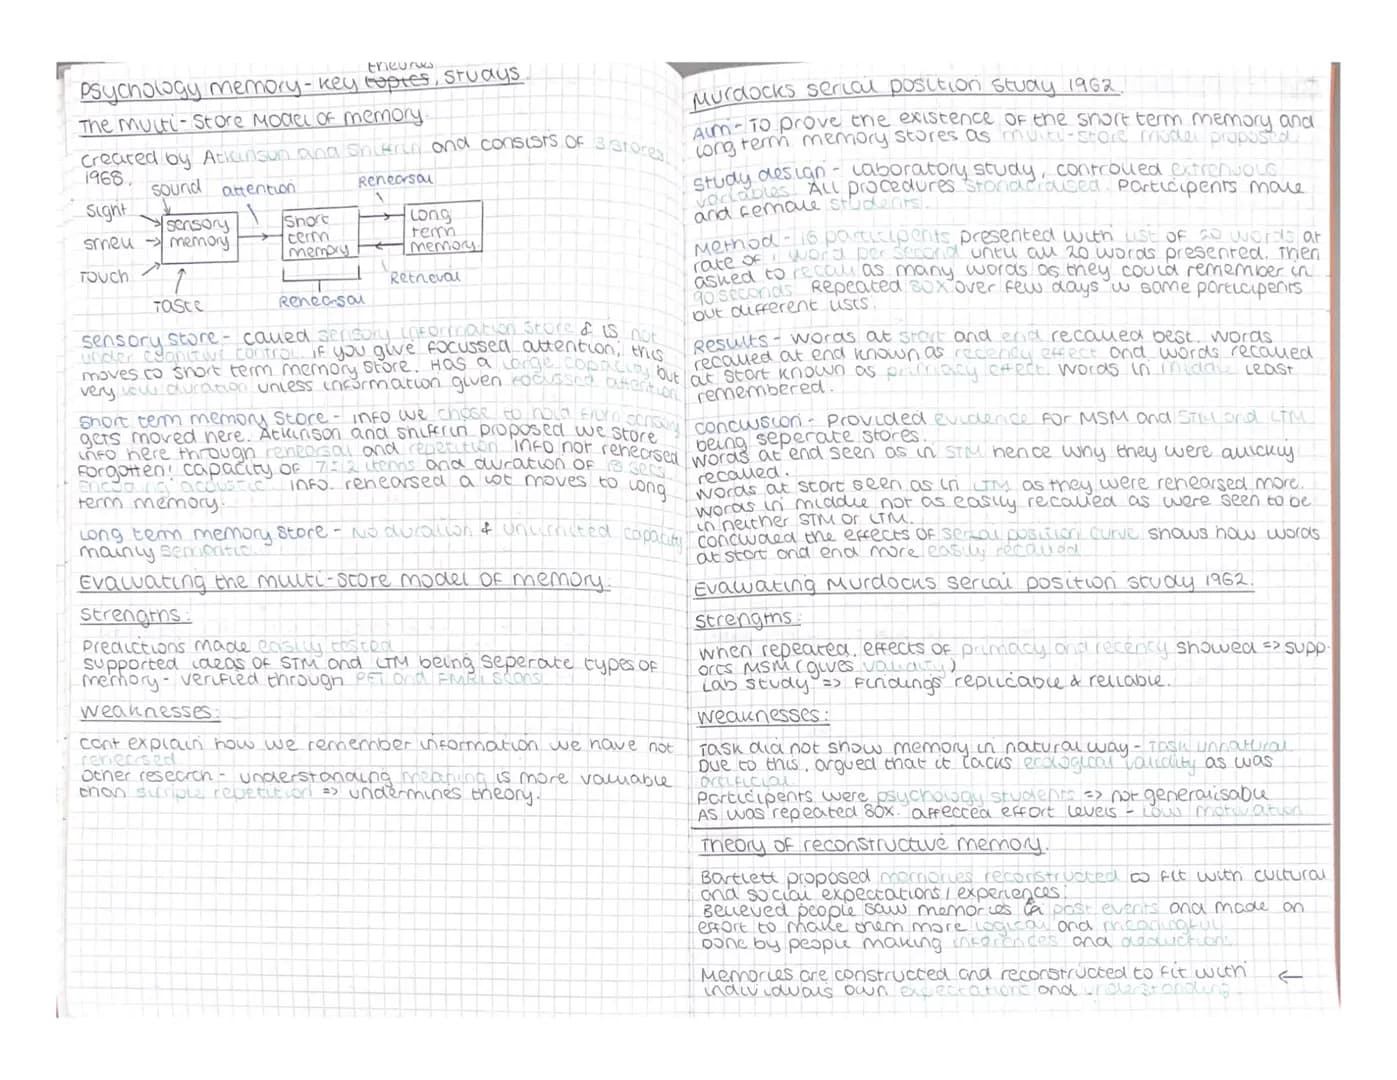 theories
Psychology memory - key topics, studys
The Multi-Store Model of memory.
created by Atkinson and Shifrin and consists of 3 stores
1968.
sound
attention
Rehearsal
Sight
smell
Touch
Taste
sensory
memory
Short
term
memory
Long
term
memory
Retrieval
Rehearsal
sensory store - called sensory information store & is not
under cognitive control. if you give focussed attention, this
moves to short term memory store. Has a large capacity but
very low duration unless information given focussed attention
Short term memory store - info we chose to hold from sensory
gets moved here. Atkinson and shifrin proposed we store
info here through rehearsal and repetition. Info not rehearsed
Forgotten! capacity of 7±2 items and duration of 18 secs
Encoding acoustic. info. rehearsed a lot moves to long
term memory.
Long term memory store - No duration & unlimited capacity
mainly semantic.
Evaluating the multi-store model of memory.
Strengths:
Predictions made easily tested
supported ideas of STM and LTM being seperate types of
memory - verified through PET and FMRI scans.
Weaknesses:
cant explain how we remember information we have not
rehearsed
Other research - understanding meaning is more valuable
than simple repetition => undermines theory.
Murdocks serial position study 1962.
Aim - To prove the existence of the short term memory and
long term memory stores as multi-store model proposed.
Study design - Laboratory study, controlled extrenuous
variables. All procedures standardised. Participents male
and female students.
Method - 16 participents presented with list of 20 words at
rate of 1 word per second until all 20 words presented. Then
asked to recall as many words as they could remember in
90 seconds Repeated 80x over few days w same participents
but different lists.
Results - words at start and end recalled best. words
recalled at end known as recency effect and words recalled
at start known as primacy effect. Words in middle least
remembered.
conclusion - Provided evidence for MSM and STM and LTM
being seperate stores.
Words at end seen as in STM hence why they were quickly
recalled.
Words at start seen as in LTM as they were rehearsed more.
words in middle not as easily recalled as were seen to be
in neither STM or LTM.
concluded the effects of serial position curve shows how words
at start and end more easily recalled
Evaluating Murdocks serial position study 1962.
Strengths:
when repeated, effects of primacy and recency showed => supp-
orts MSM (gives validity)
Lab study => Findings replicable & reliable.
Weaknesses:
Task did not show memory in natural way - Task unnatural
Due to this, argued that it lacks ecological validity as was
artificial
Participents were psychology students => not generalisable
As was repeated 80x. affected effort levels - low motivation
Theory of reconstructive memory.
Bartlett proposed memories reconstructed to fit with cultural
and social expectations / experiences.
Believed people saw memories as past events and made an
effort to make them more logical and meaningful
Done by people making inferences and deductions.
Memories are constructed and reconstructed to fit with ←
individuals own expectations and understanding.